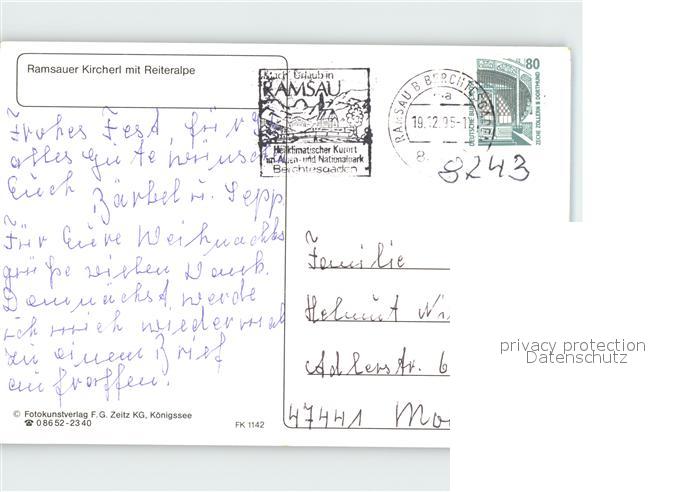 Ramsauer Kircherl mit Reiteralpe
Frohes Fest, für
alles Gute wünschen
Euch Bärbel u. Sepp
Für Eure Weihnachts
grüße vielen Dank.
Demnächst werde
ich mich wieder mal
zu einem Brief
aufraffen.
© Fotokunstverlag F.G. Zeitz KG, Königssee
☎ 0 86 52-23 40
FK 1142
Mach' Urlaub in
RAMSAU
Heilklimatischer Kurort
im Alpen- und Nationalpark
Berchtesgaden
RAMSAU B BERCHTESGADEN
a
19.12.95-1
8243
80
DEUTSCHE BUNDESPOST
ZECHE ZOLLERN II DORTMUND
Familie
Helmut
Adlerstr. 6
47441 Mo
privacy protection
Datenschutz